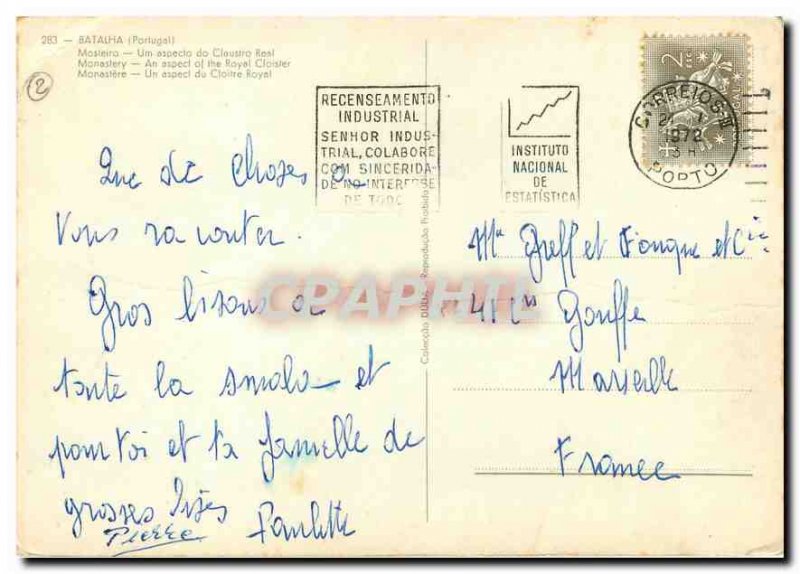 283 — BATALHA (Portugal)
Mosteiro — Um aspecto do Claustro Real
Monastery — An aspect of the Royal Cloister
Monastère — Un aspect du Cloître Royal
2
RECENSEAMENTO
INDUSTRIAL
SENHOR INDUS-
TRIAL, COLABORE
COM SINCERIDA-
DE NO INTERESSE
DE TODOS
INSTITUTO
NACIONAL
DE
ESTATÍSTICA
CORREIOS
1972
PORTO
2
Que de choses a
vous raconter.
Gros bisous de
toute la smala et
pour toi et ta famille de
grosses bises
Pierre Paulette
et Cie
41
Marseille
France
Reprodução Proibida
CPAPHIL